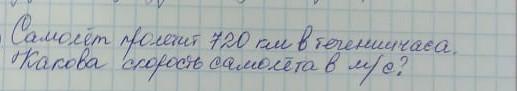 Самолёт пролетит 720 км в течениичаса.
Какова скорость самолёта в м/с?